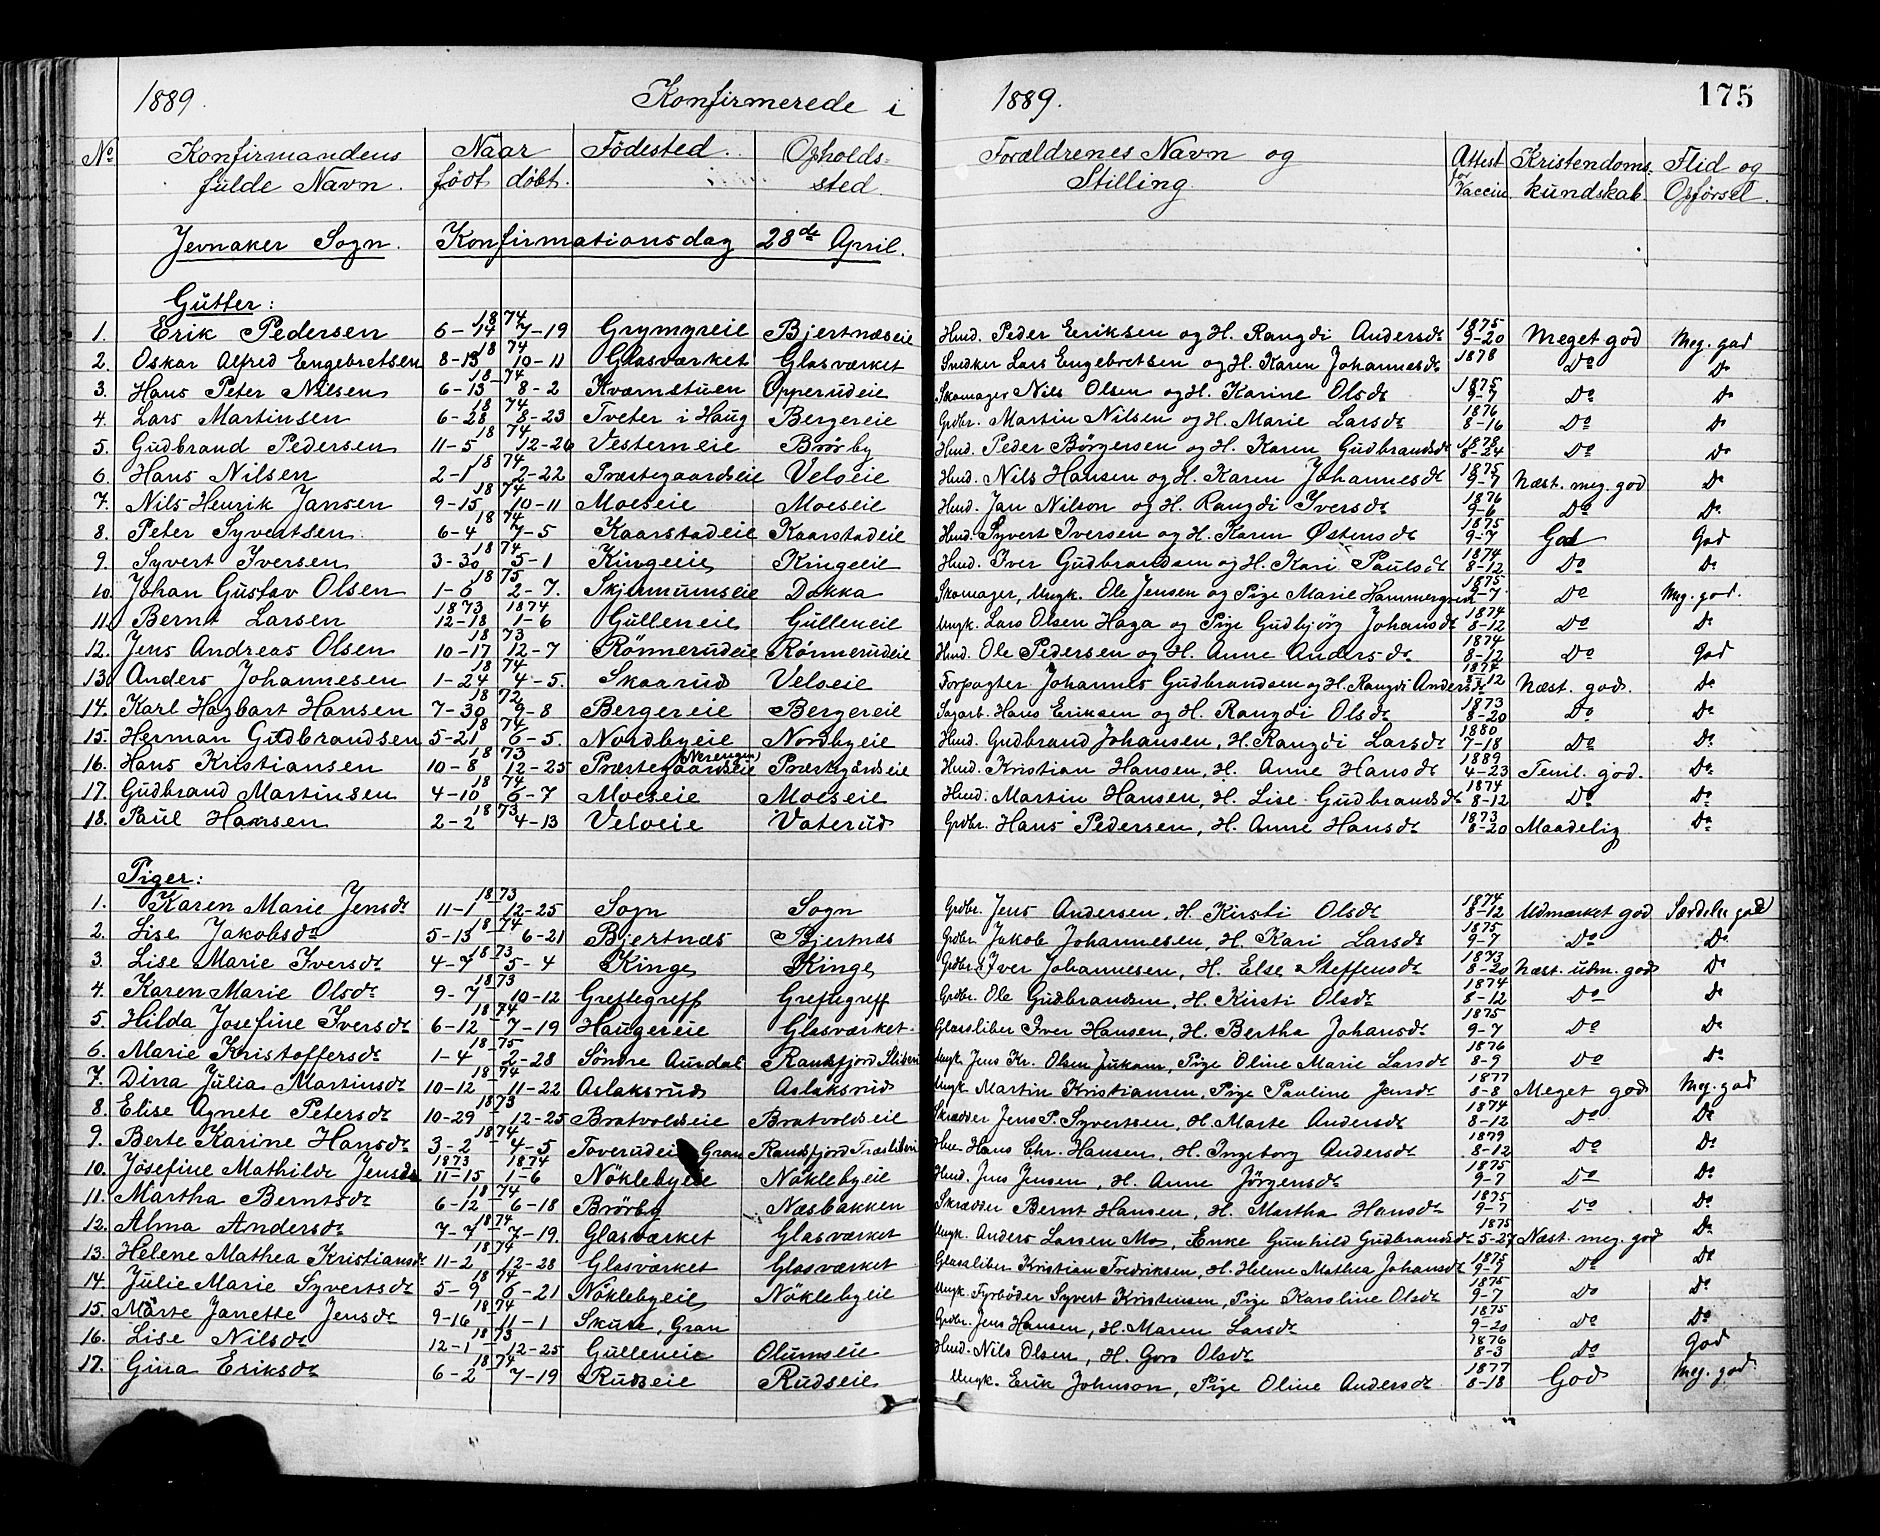 1889. Konfirmerede i 1889. 175
No Konfirmandens fulde Navn. Naar født døbt. Födested. Opholdssted. Forældrenes Navn og Stilling. Attest for Vaccin. Kristendomskundskab. Flid og Opførsel.
Jevnaker Sogn. Konfirmationsdag 28de April.
Gutter:
1. Erik Pedersen 6-14 1874 7-19 Grymyreie Bjertnæseie Hmd. Peder Eriksen og H. Rangdi Andersdr 1875 9-20 Meget god Meg. god
2. Oskar Alfred Engebretsen 8-13 1874 10-11 Glasværket Glasværket Snedker Lars Engebretsen og H. Karen Johannesdr 1878 Do Do
3. Hans Peter Nilsen 6-13 1874 8-2 Kværnstuen Opperudeie Skomager Nils Olsen og H. Karine Olsdr 1875 9-7 Do Do
4. Lars Martinsen 6-28 1874 8-23 Tveter i Haug Bergereie Grdbr. Martin Nilsen og H. Marie Larsdr 1876 8-16 Do Do
5. Gudbrand Pedersen 11-5 1874 12-26 Vesterneie Brörby Hmd. Peder Börgersen og H. Karen Gudbrandsdr 1878 8-24 Do Do
6. Hans Nilsen 2-1 1874 2-22 Præstegaardseie Veloeie Hmd. Nils Hansen og H. Karen Johannesdr 1875 9-7 Næst. meg. god Do
7. Nils Henrik Jansen 9-15 1874 10-11 Moeseie Moeseie Hmd. Jan Nilson og H. Rangdi Iversdr 1876 9-6 Do Do
8. Peter Syvertsen 6-4 1874 7-5 Kaarstadeie Kaarstadeie Hmd. Syvert Iversen og H. Karen Østensdr 1875 9-7 God God
9. Syvert Iversen 3-30 1874 5-1 Kingeeie Kingeeie Hmd. Iver Gudbrandsen og H. Kari Paulsdr 1874 8-12 Do Do
10. Johan Gustav Olsen 1-6 1875 2-7. Skjermumseie Dokka Skomager, Ungk. Ole Jensen og Pige Marie Hammergren 1875 9-7 Do Meg. god.
11. Bernt Larsen 1873 12-18 1874 1-6 Gulleneie Gulleneie Ungk. Lars Olsen Haga og Pige Gudbjörg Johansdr 1874 8-12 Do Do
12. Jens Andreas Olsen 10-17 1873 12-7 Rönnerudeie Rönnerudeie Hmd. Ole Pedersen og H. Anne Andersdr 1874 8-12 Do God
13. Anders Johannesen 1-24 1874 4-5. Skaarud Veloeie Forpagter Johannes Gudbrandsen og H. Rangdi Andersdr 1874 8-12 Næst. god. Do
14. Karl Hagbart Hansen 7-30 1872 9-8 Bergereie Bergereie Sagarb. Hans Eriksen og H. Rangdi Olsdr 1873 8-20 Do Do
15. Herman Gudbrandsen 5-21 1874 6-5. Nordbyeie Nordbyeie Hmd. Gudbrand Johansen, H. Rangdi Larsdr 1880 7-18 Do Do
16. Hans Kristiansen 10-8 1873 12-25 Præstegaardseie Præstegårdseie Hmd. Kristian Hansen, H. Anne Hansdr 1889 4-23 Temil. god. Do
17. Gudbrand Martinsen 4-10 1874 6-7 Moeseie Moeseie Hmd. Martin Hansen, H. Lise Gudbrandsdr 1874 8-12 Do Do
18. Paul Hansen 2-2 1873 4-13 Veloeie Vaterud Grdbr. Hans Pedersen, H. Anne Hansdr 1873 8-20 Maadelig Do
Piger:
1. Karen Marie Jensdr 11-1 1873 12-25 Sogn Sogn Grdbr. Jens Andersen, H. Kirsti Olsdr 1874 8-12 Udmærket god Særdeles god
2. Lise Jakobsdr 5-13 1874 6-21 Bjertnæs Bjertnæs Grdbr Jakob Johannesen, H. Kari Larsdr 1875 9-7 Do Do
3. Lise Marie Iversdr 4-7 1873 5-4 Kinge Kinge Grdbr Iver Johannesen, H. Else Steffensdr 1873 8-20 Næst. udm. god Do
4. Karen Marie Olsdr 9-7 1873 10-12 Greftegreff Greftegreff Grdbr. Ole Gudbrandsen, H. Kirsti Olsdr 1874 8-12 Do Do
5. Hilda Josefine Iversdr 6-12 1874 7-19 Haugereie Glasværket Glassliber Iver Hansen, H. Bertha Johansdr 1875 9-7 Do Do
6. Marie Kristoffersdr 1-4 1875 2-28 Søndre Aurdal Randsfjord Sliberi Ungk. Jens Kr. Olsen, Pige Oline Marie Larsdr 1876 8-9 Do Do
7. Dina Julia Martinsdr 10-12 1874 11-22 Aslaksrud Aslaksrud Ungk. Martin Kristiansen, Pige Pauline Jensdr 1877 8-8 Meget god Meg. god
8. Elise Agnete Petersdr 10-29 1873 12-25 Bratvoldseie Bratvoldseie Skrædder Jens P. Syvertsen, H. Marte Andersdr 1874 8-12 Do Do
9. Berte Karine Hansdr 3-2 1874 4-5 Toverudeie Gran Randsfjord Træsliberi Hans Chr. Hansen, H. Ingeborg Andersdr 1879 8-12 Do Do
10. Josefine Mathilde Jensdr 1873 11-15 1874 1-6 Nöklebyeie Nöklebyeie Hmd. Jens Jensen, H. Anne Jörgensdr 1875 9-7 Do Do
11. Martha Berntsdr 6-12 1874 6-18 Brörby Næsbakken Skrædder Bernt Hansen, H. Martha Hansdr 1875 9-7 Do Do
12. Alma Andersdr 7-7 1874 7-19. Glasværket Glasværket Ungk. Anders Larsen Mo, Enke Gunhild Gudbrandsdr 1875 5-27 Næst. meg. god Do
13. Helene Mathea Kristiansdr 11-2 1874 12-28 Glasværket Glasværket Glassliber Kristian Fredriksen, H. Helene Mathea Johansdr 1875 9-7 Do Do
14. Julie Marie Syvertsdr 5-9 1874 6-21 Nöklebyeie Nöklebyeie Ungk. Fyrböder Syvert Kristensen, Pige Karoline Olsdr 1875 9-7 Do Do
15. Marte Janette Jensdr 9-16 1874 11-1 Skute, Gran Grdbr. Jens Hansen, H. Maren Larsdr 1875 9-20 Do Do
16. Lise Nilsdr 12-1 1873 12-25 Gulleneie Olumseie Hmd. Nils Olsen, H. Goro Olsdr 1876 8-3 Do God
17. Gina Eriksdr 6-2 1874 7-19 Rudseie Rudseie Ungk. Erik Johnson, Pige Oline Andersdr 1877 8-18 God Meg. god